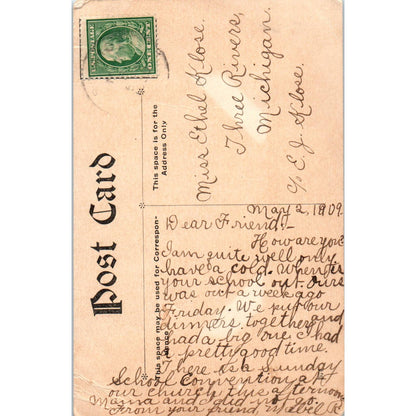 U.S. POSTAGE
ONE CENT
Post Card
This space is for the
Address Only
This space may be used for Correspondence
Miss Ethel Klose,
Three Rivers,
Michigan.
c/o E. J. Klose.
May 2, 1909.
Dear Friend:-
How are you
I am quite well only
have a cold. When is
your school out. Ours
was out a week ago
Friday. We put our
dinners together and
had a big one. I had
a pretty good time.
There is a Sunday
School convention at
our church this afternoon
Mama and did not go.
From your friend Mabel R